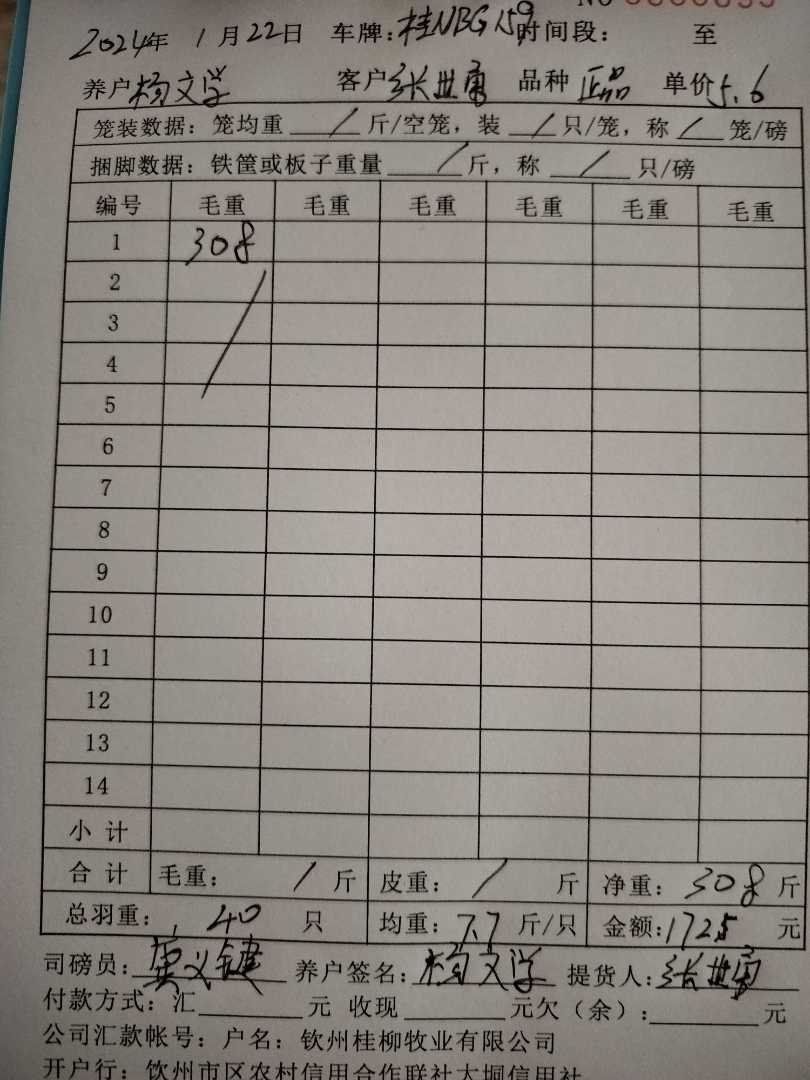 NO
2024年 1月22日 车牌:桂NBG159 时间段: 至
养户杨文学 客户张世勇 品种 正品 单价5.6
笼装数据：笼均重 / 斤/空笼，装 / 只/笼，称 / 笼/磅
捆脚数据：铁筐或板子重量 / 斤，称 / 只/磅
编号 毛重 毛重 毛重 毛重 毛重 毛重
1 308
2
3
4
5
6
7
8
9
10
11
12
13
14
小 计
合 计 毛重： / 斤 皮重： / 斤 净重： 308 斤
总羽重： 40 只 均重： 7.7 斤/只 金额: 1725 元
司磅员: 养户签名: 杨文学 提货人: 张世勇
付款方式：汇 元 收现 元欠（余）: 元
公司汇款帐号：户名：钦州桂柳牧业有限公司
开户行：钦州市区农村信用合作联社大垌信用社